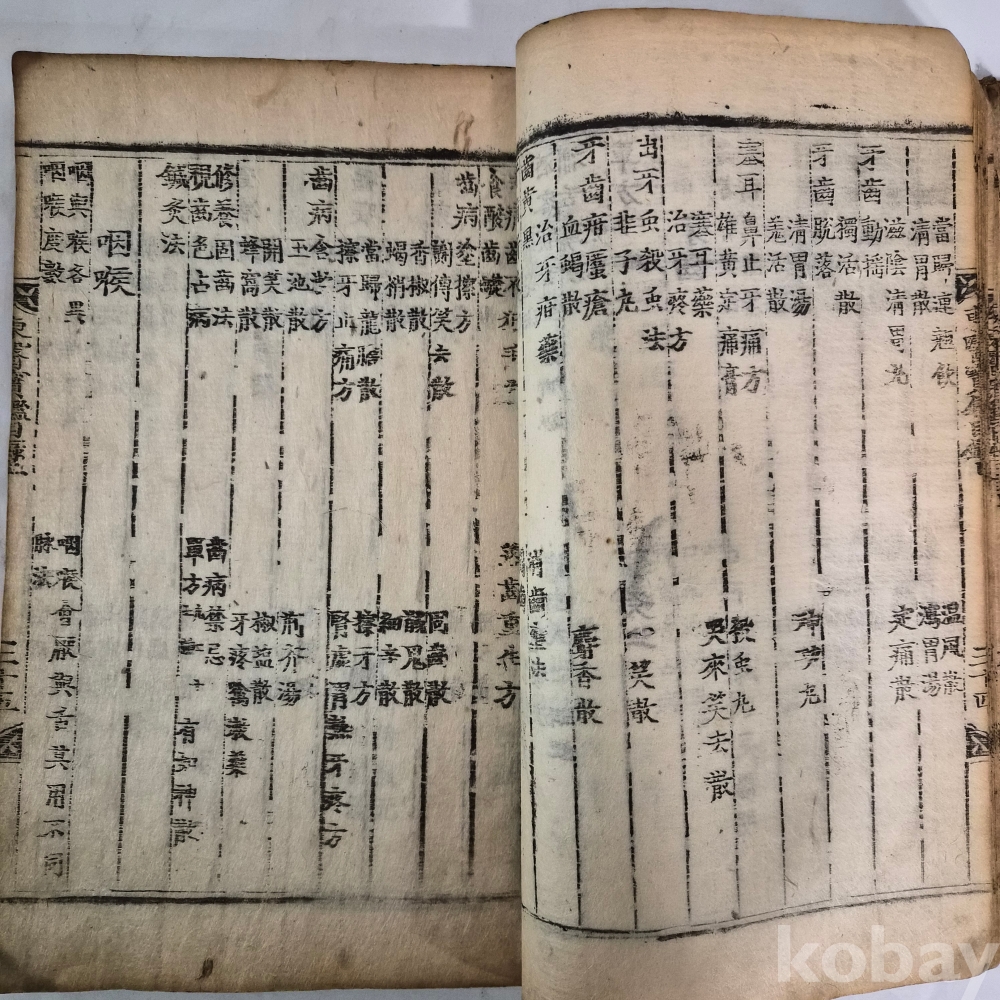 當歸連翹飲
溫風散
清胃散
瀉胃湯
滋陰清胃丸
定痛散
牙齒動搖
獨活散
牙齒脫落
清胃湯
羌活散
塞耳鼻止牙痛方
雄黃定痛膏
塞耳藥
殺虫丸
治牙疼方
哭來笑去散
出牙虫殺虫法
韭子丸
一笑散
牙齒疳䘌瘡
血竭散
麝香散
治牙疳藥
齒病塗擦方
齠傳笑去散
香椒散
蝎梢散
細辛散
當歸龍膽散
擦牙方
擦牙止痛方
腎虛胃熱牙疼方
齒病含漱方
玉池散
荊芥湯
開笑散
椒鹽散
蜂窩散
牙疼禁義藥
修養固齒法
齒病禁忌
視齒色占病
單方
有安神散
鍼灸法
咽喉
咽與喉各異
咽喉會厭與舌其用不同
咽喉度數
脉法
東醫寶鑑目錄上
二十四
二十五
kobay